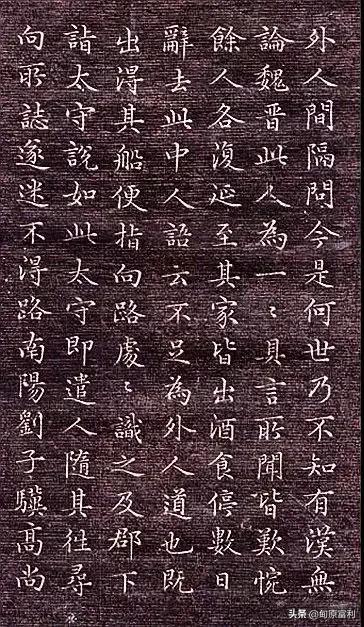 外人間隔問今是何世乃不知有漢無
論魏晉此人為一〻具言所聞皆歎惋
餘人各復延至其家皆出酒食停數日
辭去此中人語云不足為外人道也既
出得其船便指向路處〻識之及郡下
詣太守說如此太守即遣人隨其往尋
向所誌遂迷不得路南陽劉子驥高尚
头条 @甸原富利